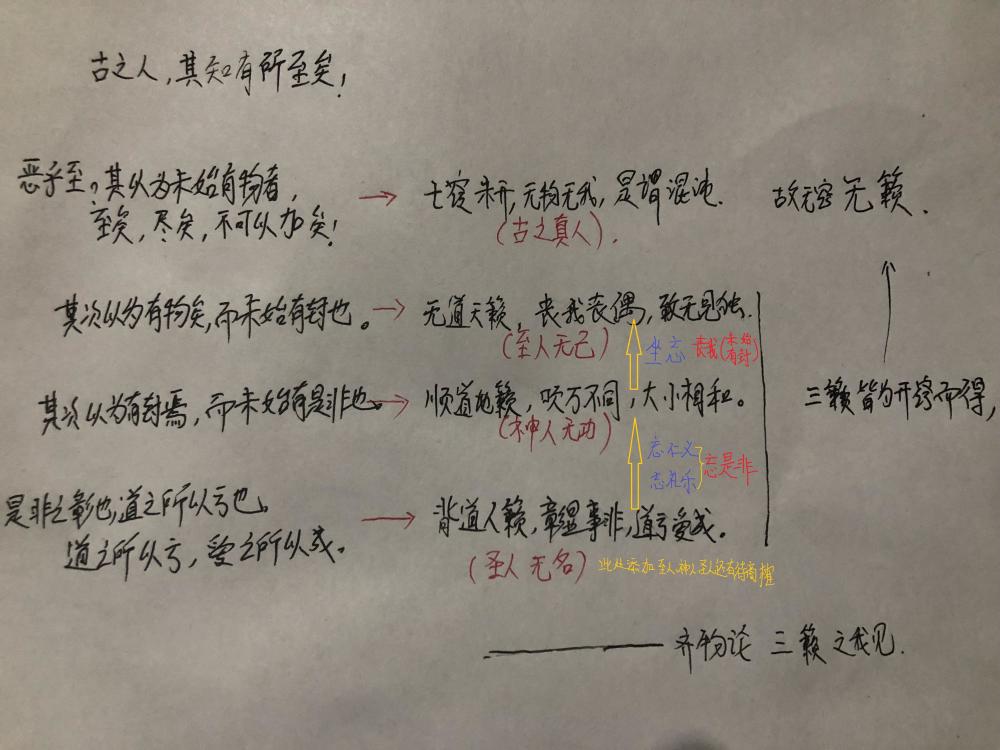 古之人，其知有所至矣！
恶乎至？其以为未始有物者，
至矣，尽矣，不可以加矣！
→ 七窍未开，无物无我，是谓混沌.
(古之真人).
故无窍无籁.
其次以为有物矣，而未始有封也。
→ 无道天籁，丧我丧偶，致无见独.
(至人无己)
坐忘 丧我(未始有封)
其次以为有封焉，而未始有是非也。
→ 顺道地籁，吹万不同，大小相和。
(神人无功)
三籁皆为开窍而得，
忘仁义
忘礼乐
忘是非
是非之彰也，道之所以亏也，
道之所以亏，爱之所以成。
→ 背道人籁，章显事非，道亏爱成。
(圣人无名) 此处添加至人神人圣人还有待商榷
—— 齐物论 三籁之我见.